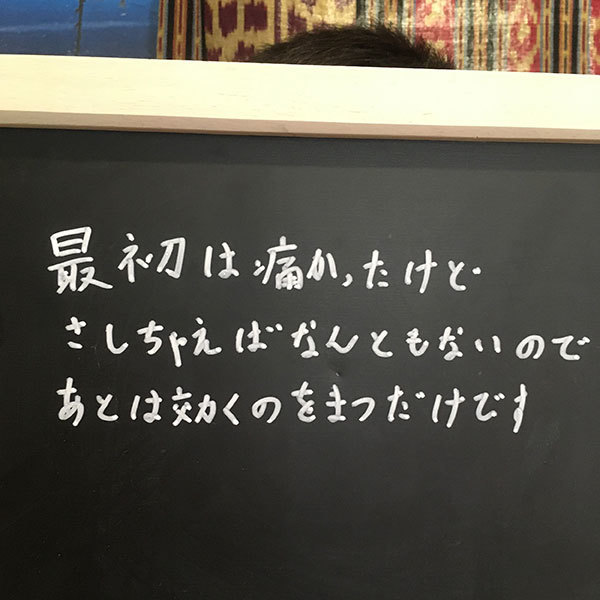 最初は痛かったけど
さしちゃえばなんともないので
あとは効くのをまつだけです